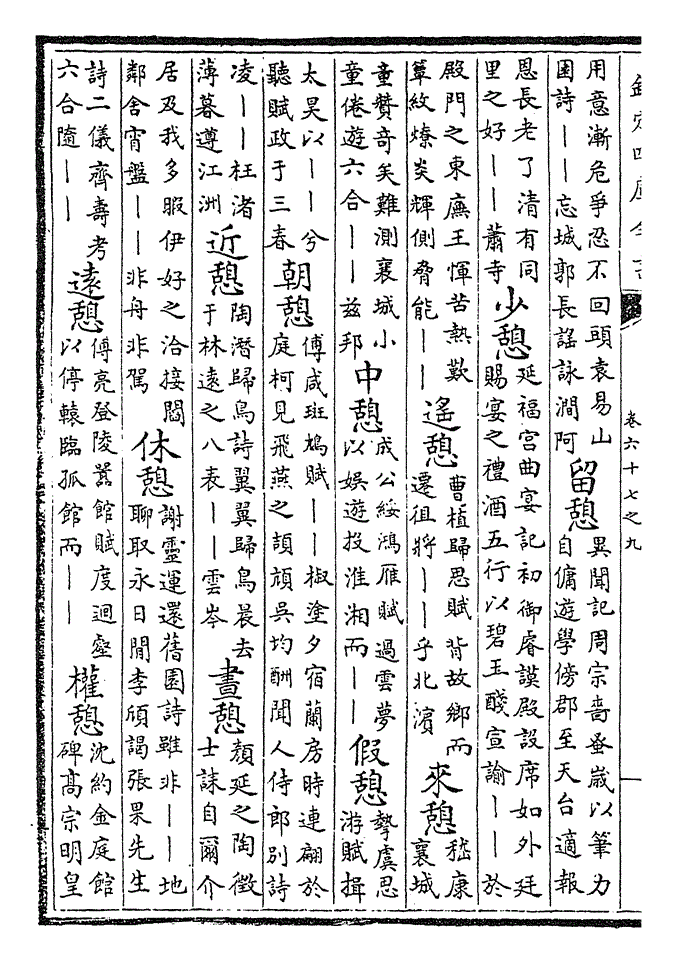 欽定四庫全書
卷六十七之九
用意漸危爭忍不回頭袁易山
園詩――忘城郭長謡詠澗阿
留憩
異聞記周宗嗇蚤歳以筆力
自傭遊學傍郡至天台適報
恩長老了清有同
里之好――蕭寺
少憩
延福宫曲宴記初御睿謨殿設席如外廷
賜宴之禮酒五行以碧玉醆宣諭――於
殿門之東廡王惲苦熱歎
簟紋燎炎輝側脅能――
遙憩
曹植歸思賦背故鄉而
遷徂將――乎北濵
來憩
嵇康
襄城
童賛竒矣難測襄城小
童倦遊六合――兹邦
中憩
成公綏鴻雁賦過雲夢
以娱遊投淮湘而――
假憩
摯虞思
游賦揖
太昊以――兮
聽賦政于三春
朝憩
傅咸斑鳩賦――椒塗夕宿蘭房時連翩於
庭柯見飛燕之頡頏吳均酬聞人侍郎别詩
凌――枉渚
薄暮遵江洲
近憩
陶潛歸鳥詩翼翼歸鳥晨去
于林遠之八表――雲岑
晝憩
顔延之陶徵
士誄自爾介
居及我多暇伊好之洽接閻
鄰舍宵盤――非舟非駕
休憩
謝靈運還舊園詩雖非――地
聊取永日閒李頎謁張果先生
詩二儀齊壽考
六合隨――
遠憩
傅亮登陵囂館賦度迴壑
以停轅臨孤館而――
權憩
沈約金庭館
碑髙宗明皇